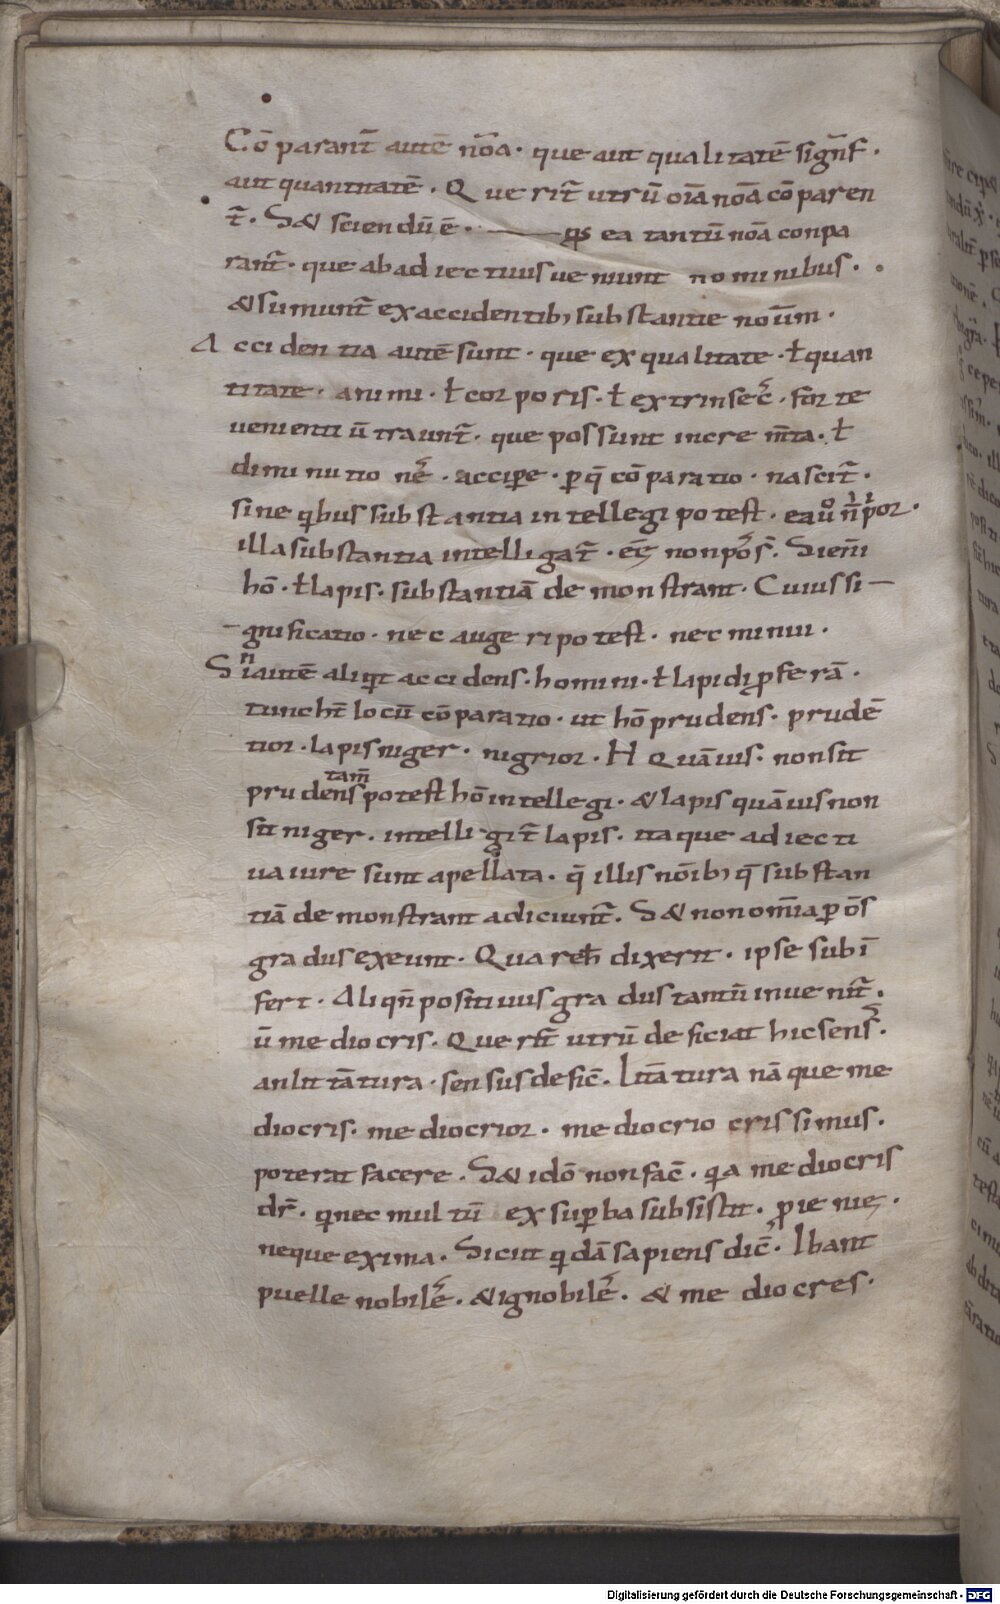 Cō parant̄ autē nōa · que aut qualitatē signf̄ ·
aut quantitatē · Querit̄ utrū oīa nōa cōparen
t̄ · S& sciendū ē · qs ea tantū nōa conpa
rant̄ · que ab adiectiuis ueniunt nominibus ·
& sumunt̄ ex accidentib; substantie noūm ·
Accidentia autē sunt · que ex qualitate · ł quan
titate · animi · ł corporis · ł extrinsec̄ · forte
uenienti ū traunt̄ · que possunt increm̄ta · ł
diminutio nē · accipe · p q̄ cōparatio · nascit̄ ·
sine qibus substantia intellegi potest · ea
illa substantia intelligat̄ · eē non pos̄ · Si enī
hō · ł lapis · substantiā demonstrant · Cuius si—
-gnificatio · nec augeri potest · nec minui ·
Sin autē aliqt accidens · homini · ł lapidi p ferā ·
tunc ht̄ locū cōparatio · ut hō prudens · prudē
tior · lapis niger · nigrior · H Quāuis · non sit
prudens tam̄ potest hō intellegi · & lapis quāuis non
sit niger · intelligit̄ lapis · itaque adiecti
ua iure sunt apellata · q̄ illis nōib; q̄ substan
tiā demonstrant adiciunt̄ · S& non om̄ia p ōs
gradus exeunt · Quare h̄ dixerit · ipse subī
fert · Aliqn̄ positiuus gradus tantū inuenit̄ ·
ū mediocris · Querit̄ utrū deficiat hic sens̄ ·
an littātura · sensus defic̄ · Littātura nā que me
diocris · mediocrior · mediocrio crissimus ·
poterat facere · S& idō non fac̄ · qa mediocris
dr̄ · q nec multū ex supba subsistit ·
neque exima · Sicut qdā sapiens dic̄ · Ibant
puelle nobilē · & ignobilē · & mediocres ·
Digitalisierung gefördert durch die Deutsche Forschungsgemeinschaft - DFG